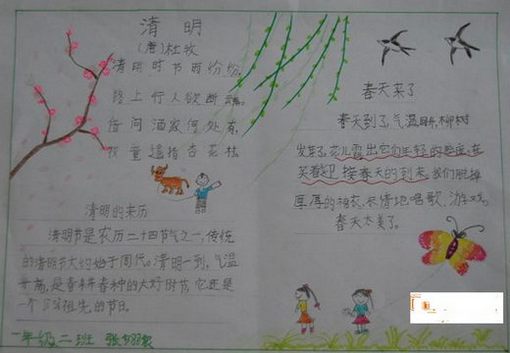 清明
(唐)杜牧
清明时节雨纷纷,
路上行人欲断魂。
借问酒家何处有,
牧童遥指杏花村。
清明的来历
清明节是农历二十四节气之一,传统
的清明节大约始于周代。清明一到,气温
升高,是春耕春种的大好时节,它还是
一个祭祀祖先的节日。
一年级二班 张
春天来了
春天到了,气温日日,柳树
发芽了,花儿露出它们年轻的笑脸,在
笑着迎接春天的到来,我们脱掉
厚厚的棉衣,尽情地唱歌、游戏。
春天太美了。